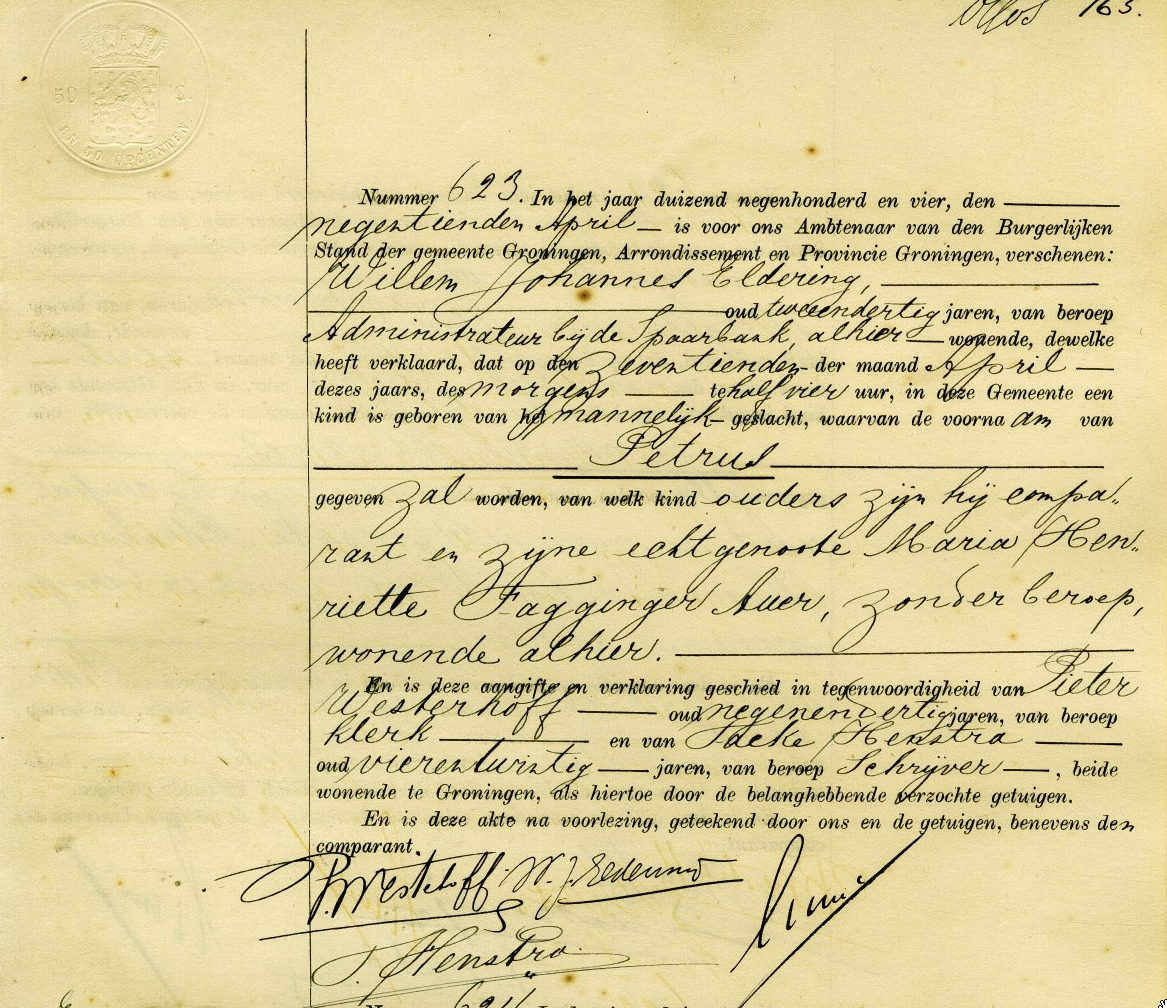 163.
50 C.
EN 50 OPCENTEN.
Nummer 623. In het jaar duizend negenhonderd en vier, den
negentienden April is voor ons Ambtenaar van den Burgerlijken
Stand der gemeente Groningen, Arrondissement en Provincie Groningen, verschenen:
Willem Johannes Eldering,
oud tweeendertig jaren, van beroep
Administrateur bij de Spaarbank, alhier wonende, dewelke
heeft verklaard, dat op den zeventienden der maand April
dezes jaars, des morgens te half vier uur, in deze Gemeente een
kind is geboren van het mannelijk geslacht, waarvan de voorna am van
Petrus
gegeven zal worden, van welk kind ouders zijn hij compa-
rant en zijne echtgenoote Maria Hen-
riette Fagginger Auer, zonder beroep,
wonende alhier.
En is deze aangifte en verklaring geschied in tegenwoordigheid van Pieter
Westerhoff oud negenendertig jaren, van beroep
klerk en van Tjaeke Henstra
oud vierentwintig jaren, van beroep Schrijver, beide
wonende te Groningen, als hiertoe door de belanghebbende verzochte getuigen.
En is deze akte na voorlezing, geteekend door ons en de getuigen, benevens den
comparant.
P. Westerhoff W. J. Eldering
T. Henstra
Nummer 624